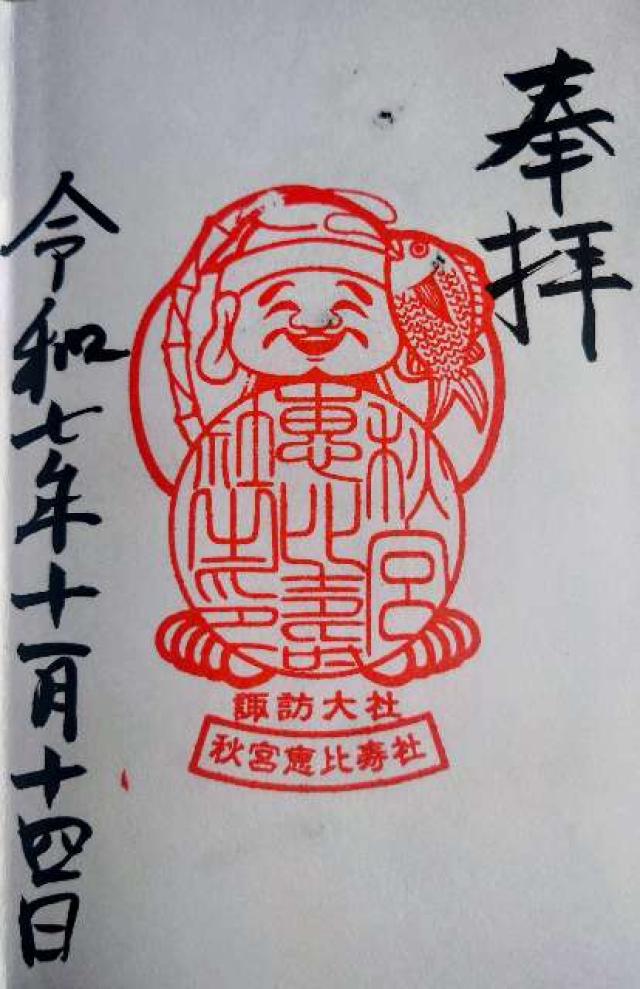 奉拝
秋宮
恵比寿
社之印
諏訪大社
秋宮恵比寿社
令和七年十一月十四日